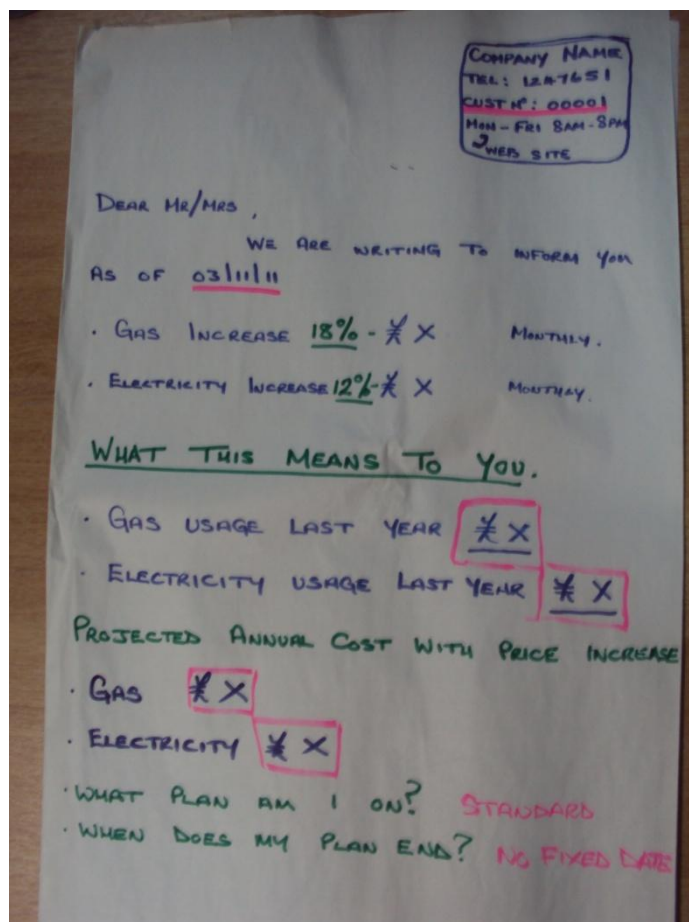 COMPANY NAME
TEL: 1247651
CUST Nº: 00001
MON-FRI 8AM-8PM
WEB SITE
DEAR MR/MRS,
WE ARE WRITING TO INFORM YOU
AS OF 03/11/11
· GAS INCREASE 18% - X MONTHLY.
· ELECTRICITY INCREASE 12% - X MONTHLY.
WHAT THIS MEANS TO YOU.
· GAS USAGE LAST YEAR X
· ELECTRICITY USAGE LAST YEAR X
PROJECTED ANNUAL COST WITH PRICE INCREASE
· GAS X
· ELECTRICITY X
· WHAT PLAN AM I ON? STANDARD
· WHEN DOES MY PLAN END? NO FIXED DATE